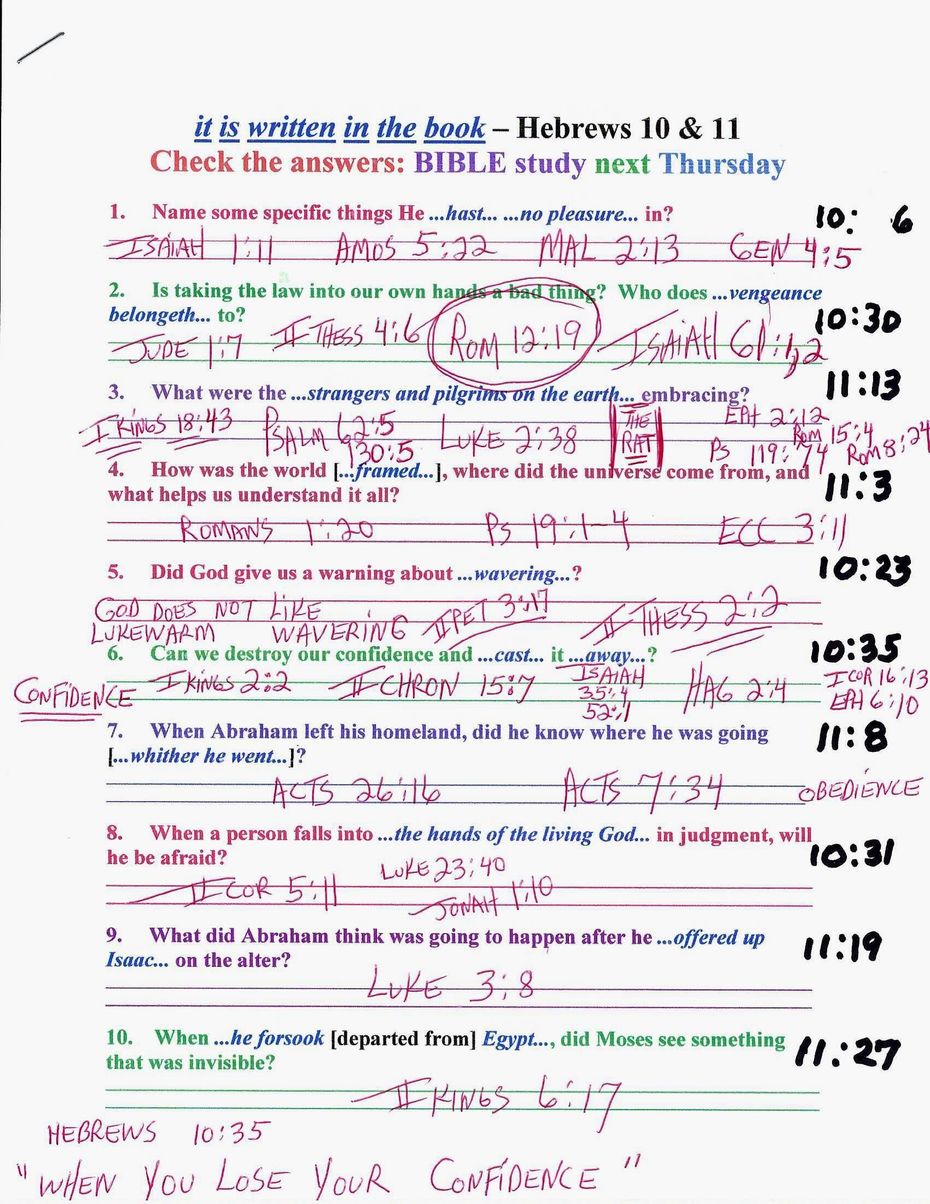 it is written in the book – Hebrews 10 & 11
Check the answers: BIBLE study next Thursday
1. Name some specific things He ...hast... ...no pleasure... in? 10: 6
ISAIAH 1:11 AMOS 5:22 MAL 2:13 GEN 4:5
2. Is taking the law into our own hands a bad thing? Who does ...vengeance
belongeth... to? 10:30
JUDE 1:7 II THESS 4:6 ROM 12:19 ISAIAH 61:1,2
3. What were the ...strangers and pilgrims on the earth... embracing? 11:13
I KINGS 18:43 PSALM 62:5 LUKE 2:38 THE EPH 2:12 Rom 15:4
130:5 RAT Ps 119:74 Rom 8:24
4. How was the world [...framed...], where did the universe come from, and
what helps us understand it all? 11:3
ROMANS 1:20 Ps 19:1-4 ECC 3:11
5. Did God give us a warning about ...wavering...? 10:23
GOD DOES NOT LiKE
LUKEWARM WAVERiNG II PET 3:17 II THESS 2:2
6. Can we destroy our confidence and ...cast... it ...away...? 10:35
CONFiDENCE I KINGS 2:2 II CHRON 15:7 ISAIAH HAG 2:4 I COR 16:13
35:4 EPH 6:10
52:1
7. When Abraham left his homeland, did he know where he was going
[...whither he went...]? 11:8
ACTS 26:16 ACTS 7:34 OBEDiENCE
8. When a person falls into ...the hands of the living God... in judgment, will
he be afraid? 10:31
LUKE 23:40
II COR 5:11 JONAH 1:10
9. What did Abraham think was going to happen after he ...offered up
Isaac... on the alter? 11:19
LUKE 3:8
10. When ...he forsook [departed from] Egypt..., did Moses see something
that was invisible? 11:27
II KINGS 6:17
HEBREWS 10:35
"WHEN YOU LOSE YOUR CONFiDENCE"